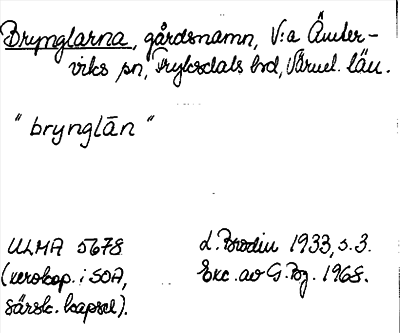 Brynglarna, gårdsnamn, V:a Ämter-
viks sn, Fryksdals hd, Värml. län.
" brynglān "
ULMA 5678 L. Brodin 1933, s. 3.
(xerokop. i SOA, Exc. av G. Bg. 1968.
särsk. kapsel).